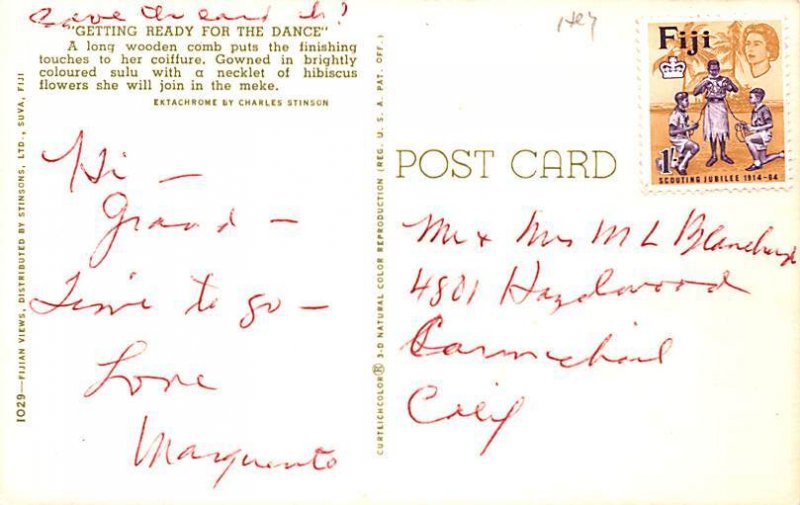 Save the card
"GETTING READY FOR THE DANCE"
A long wooden comb puts the finishing
touches to her coiffure. Gowned in brightly
coloured sulu with a necklet of hibiscus
flowers she will join in the meke.
EKTACHROME BY CHARLES STINSON
1029—FIJIAN VIEWS, DISTRIBUTED BY STINSONS, LTD., SUVA, FIJI
Hi —
Grand —
Time to go —
Love
CURTEICHCOLOR® 3-D NATURAL COLOR REPRODUCTION (REG. U. S. A. PAT. OFF.)
Fiji
1/-
SCOUTING JUBILEE 1914-64
POST CARD
Mr + Mrs M L
4801 Hazelwood
Carmichael
Calif